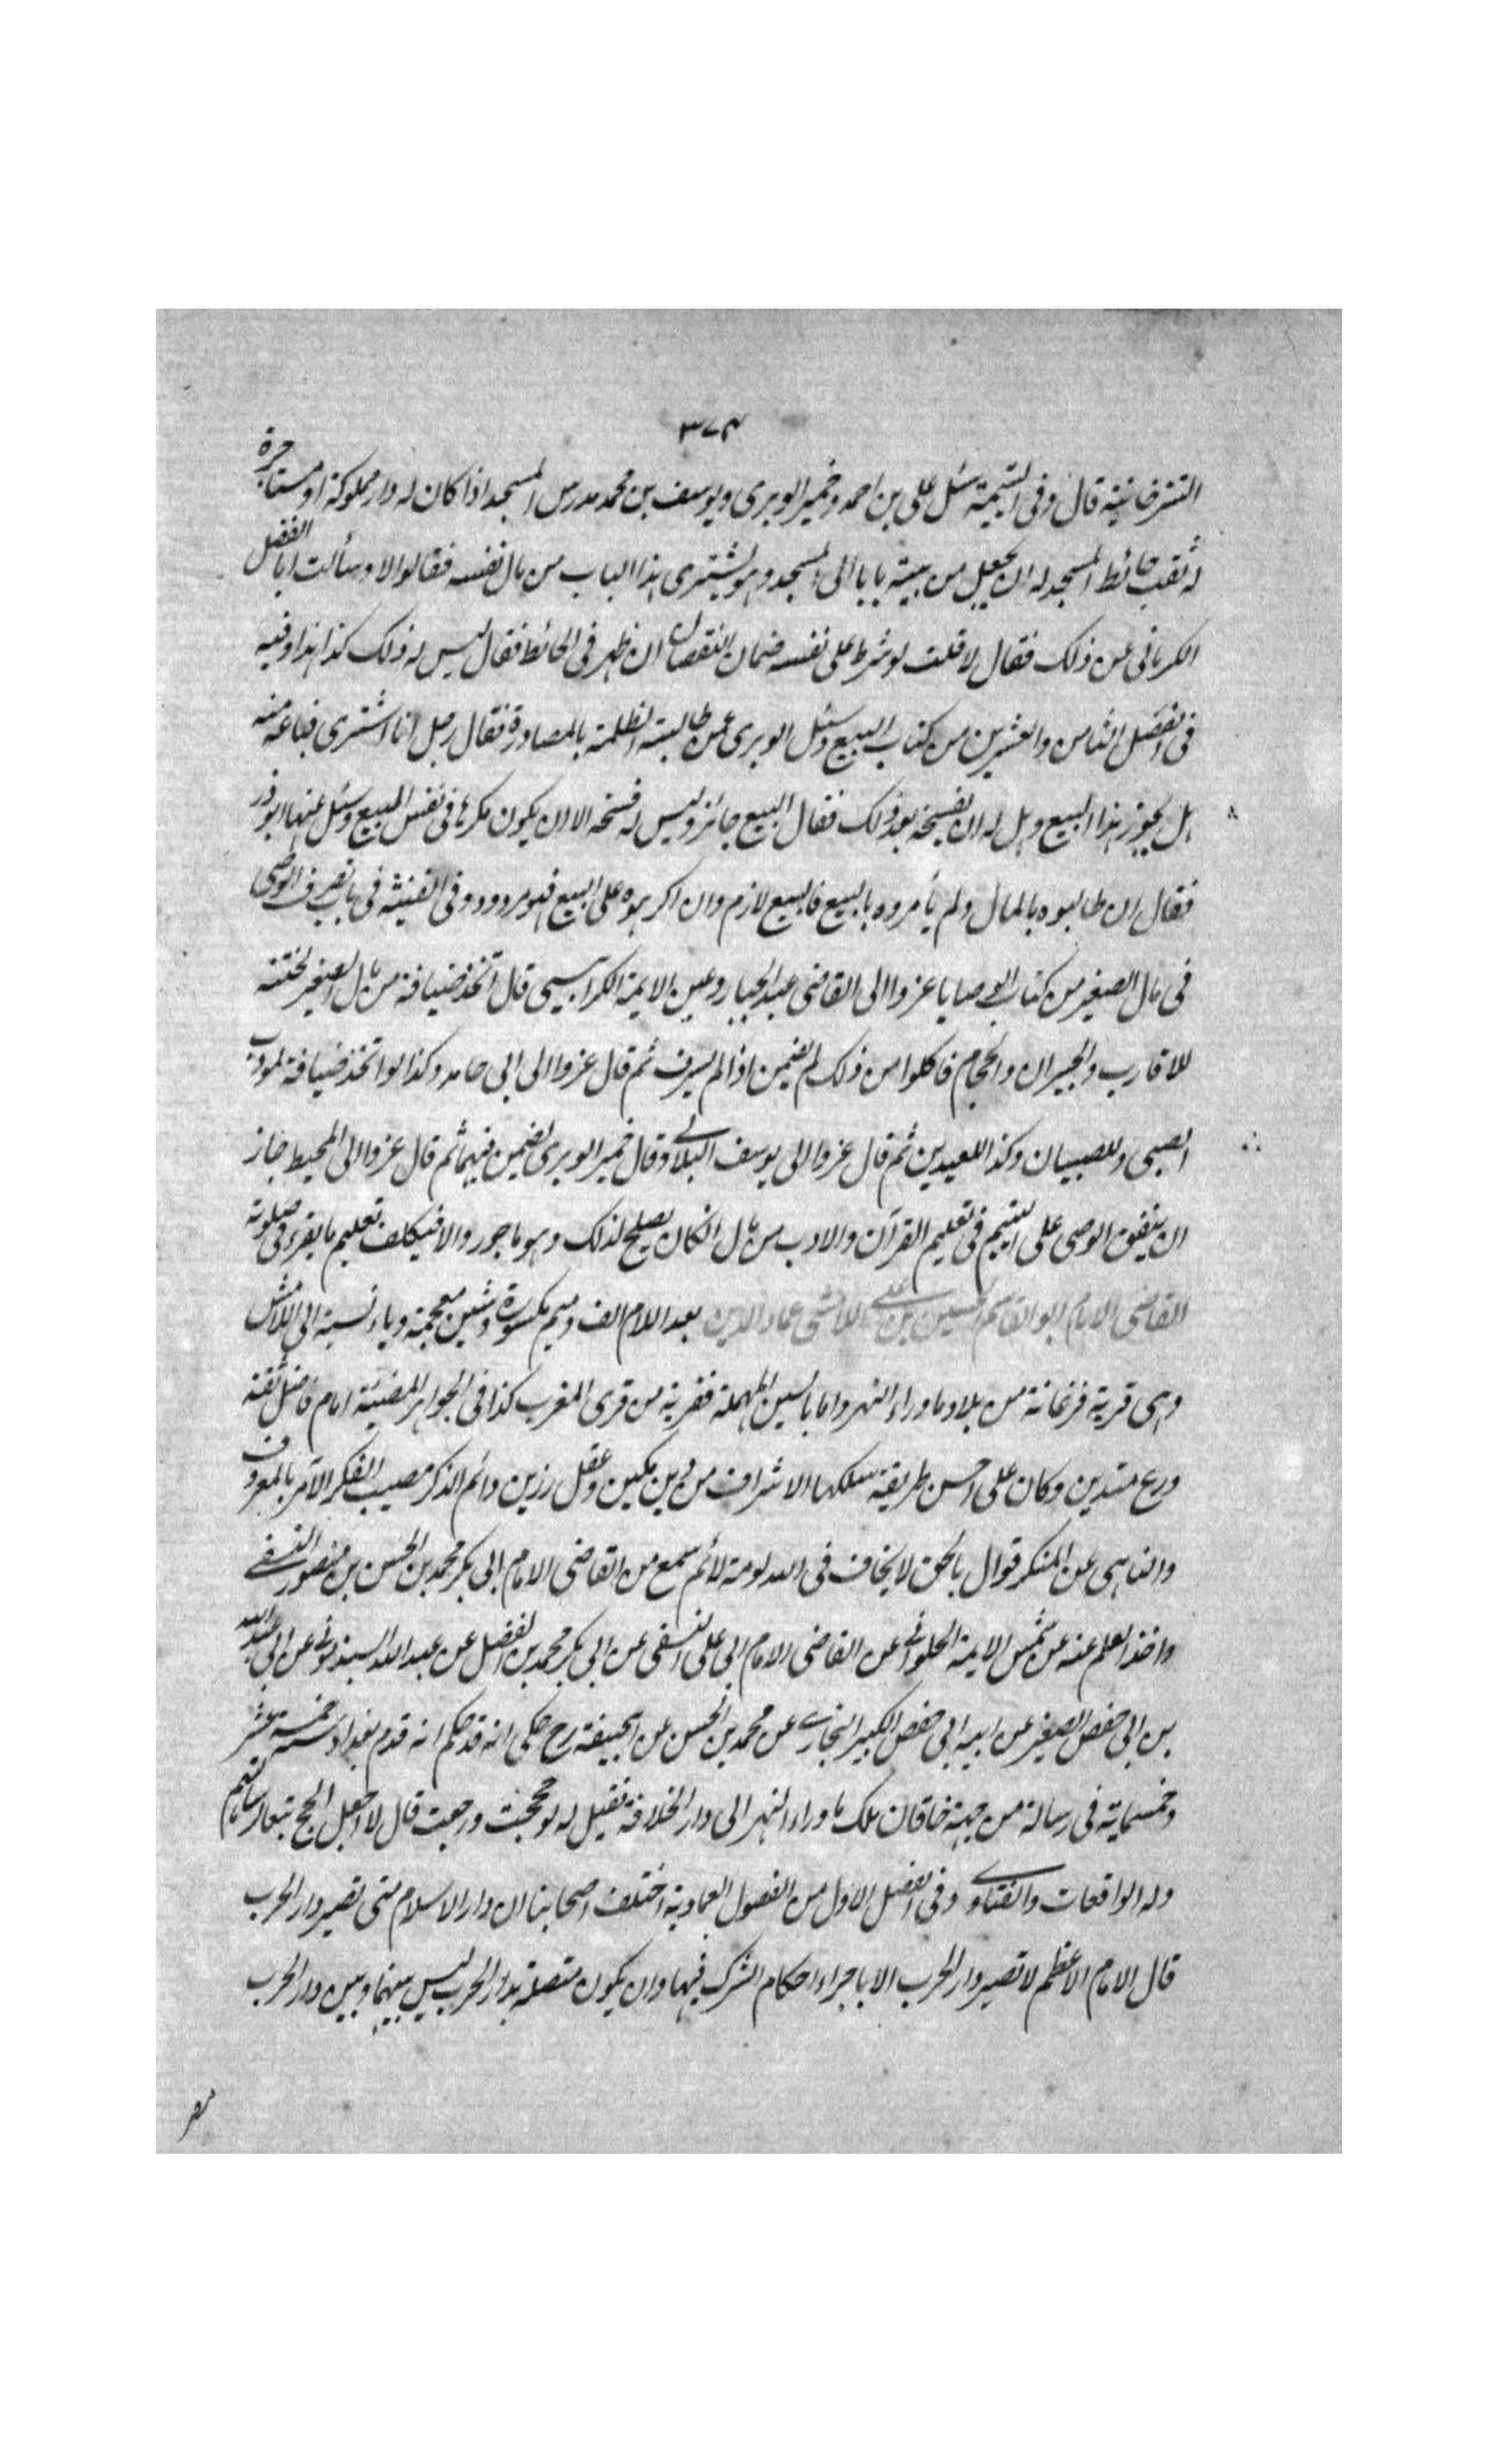 ٣٧٤
التترخانية قال وفى اليتيمة سئل على بن احمد وخمير الوبرى ويوسف بن محمد مدرس المسجد اذا كان له دار مملوكة او مستاجرة
له ثقب حائط المسجد له ان يجعل من بيته بابا الى المسجد وهو يشترى هذا الباب من مال نفسه فقالوا لا وسألت ابا الفضل
الكرمانى عن ذلك فقال لا قلت لو شرط على نفسه ضمان النقصان ان ظهر فى الحائط فقال ليس له ذلك كذا هذا وفيه
فى الفصل الثامن والعشرين من كتاب البيع وسئل الوبرى عمن طالبته الظلمة بالمصادرة فقال رجل انا اشترى فباعه منه
هل يجوز هذا البيع وهل له ان يفسخه بعد ذلك فقال البيع جائز وليس له فسخه الا ان يكون مكرها فى نفس المبيع وسئل عنها ابو ذر
فقال ان طالبوه بالمال ولم يأمروه بالبيع فالبيع لازم وان اكرهوه على البيع فهو مردود وفى القنية فى باب تصرف الوصى
فى مال الصغير من كتاب الوصايا عزوا الى القاضى عبد الجبار وعين الايمة الكرابيسى قال اتخذ ضيافة من مال الصغير لختنه
للاقارب والجيران والحجام فاكلوا من ذلك لم يضمن اذا لم يسرف ثم قال عزوا الى ابى حامد وكذا لو اتخذ ضيافة لمودب
الصبى وللصبيان وكذا للعيدين ثم قال عزوا الى يوسف البلالى وقال خمير الوبرى يضمن فيهما ثم قال عزوا الى المحيط جاز
ان ينفق الوصى على اليتيم فى تعليم القرآن والادب من مال ان كان يصلح لذلك وهو ماجور والا فيتكلف تعليم ما يقرء فى صلوته
القاضى الامام ابو القاسم الحسين بن على اللامشى عماد الدين بعد اللام الف وميم مكسورة وشين معجمة وياء نسبة الى اللامش
وهى قرية فرغانة من بلاد ما وراء النهر واما بالسين المهملة فقرية من قرى المغرب كذا فى الجواهر المضيئة امام فاضل ثقة
ورع متدين وكان على احسن طريقة سلكها الاشراف من دين مكين وعقل رزين دائم الذكر مصيب الفكر الآمر بالمعروف
والناهى عن المنكر قوال بالحق لا يخاف فى الله لومة لائم سمع من القاضى الامام ابى بكر محمد بن الحسن بن منصور النسفى
واخذ العلم عنه عن شمس الايمة الحلوانى عن القاضى الامام ابى على النسفى عن ابى بكر محمد بن الفضل عن عبد الله السبذمونى عن ابى عبد الله
بن ابى حفص الصغير عن ابيه ابى حفص الكبير البخارى عن محمد بن الحسن عن ابى حنيفة رح حكى انه قد حكم انه قدم بغداد سنة خمسة عشر
وخمسماية فى رسالة من جهة خاقان ملك ما وراء النهر الى دار الخلافة فقيل له لو حججت ورجعت قال لا اجعل الحج تبعا لرسالتهم
وله الواقعات والفتاوى وفى الفصل الاول من الفصول العمادية اختلف اصحابنا ان دار الاسلام متى تصير دار الحرب
قال الامام الاعظم لا تصير دار الحرب الا باجراء احكام الشرك فيها وان يكون متصلة بدار الحرب ليس بينهما وبين دار الحرب